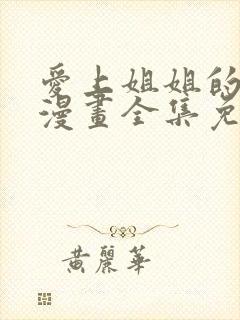 愛上姐姐的
漫畫全集免
黃麗華